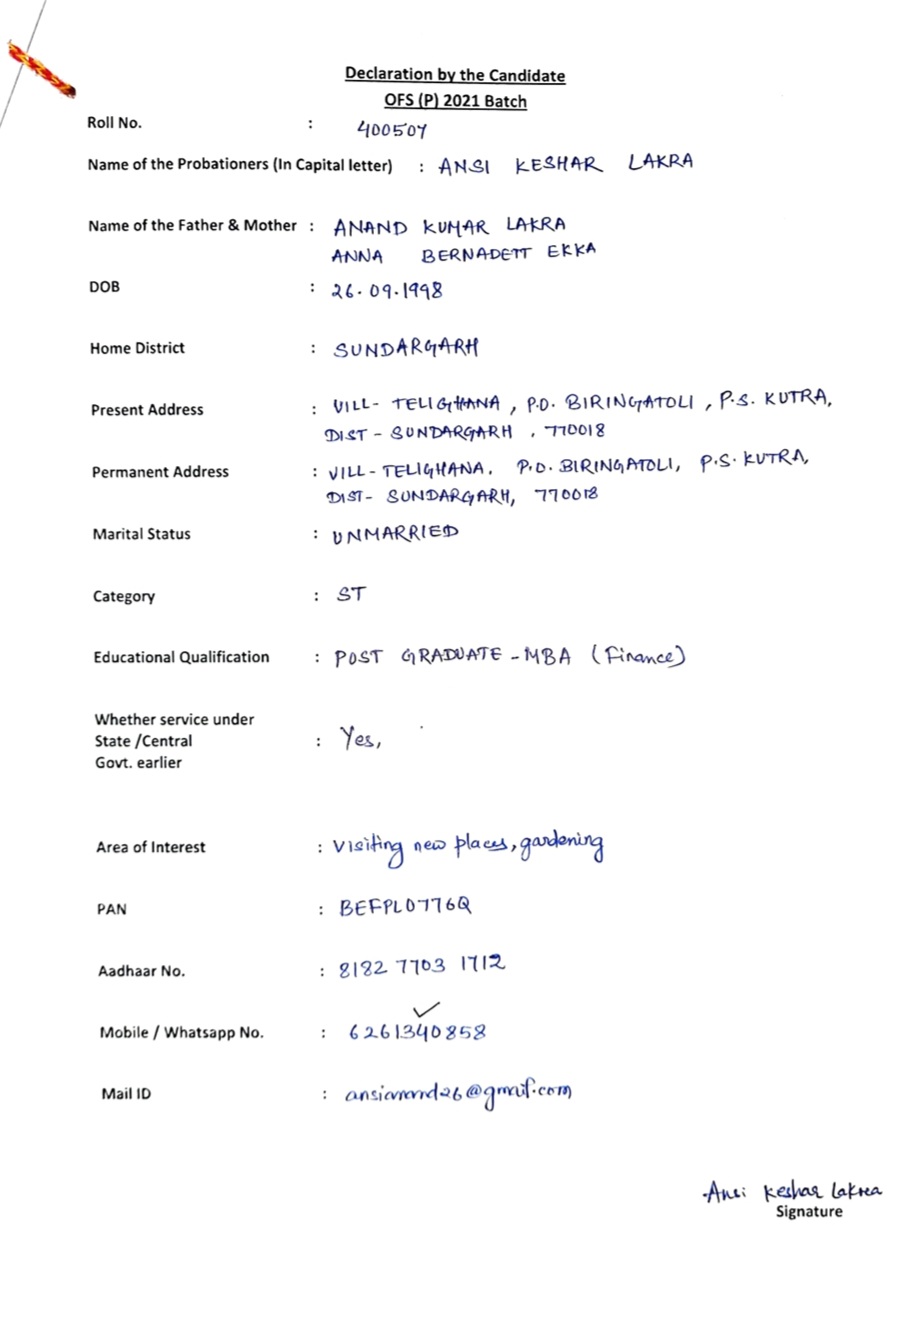 Declaration by the Candidate
OFS (P) 2021 Batch
Roll No. : 400507
Name of the Probationers (In Capital letter) : ANSI KESHAR LAKRA
Name of the Father & Mother : ANAND KUMAR LAKRA
ANNA BERNADETT EKKA
DOB : 26.09.1998
Home District : SUNDARGARH
Present Address : VILL- TELIGHANA, P.O. BIRINGATOLI, P.S. KUTRA,
DIST - SUNDARGARH, 770018
Permanent Address : VILL-TELIGHANA, P.O. BIRINGATOLI, P.S. KUTRA,
DIST- SUNDARGARH, 770018
Marital Status : UNMARRIED
Category : ST
Educational Qualification : POST GRADUATE -MBA (Finance)
Whether service under
State /Central : Yes,
Govt. earlier
Area of Interest : Visiting new places, gardening
PAN : BEFPL0776Q
Aadhaar No. : 8182 7703 1712
Mobile / Whatsapp No. : 6261340858
Mail ID : ansianand26@gmail.com
Ansi Keshar Lakra
Signature